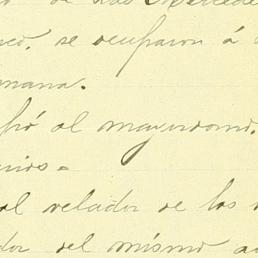 de las Mercede
se ocuparon á
mana.
al mayordomo.
al velador de los
dor del mismo